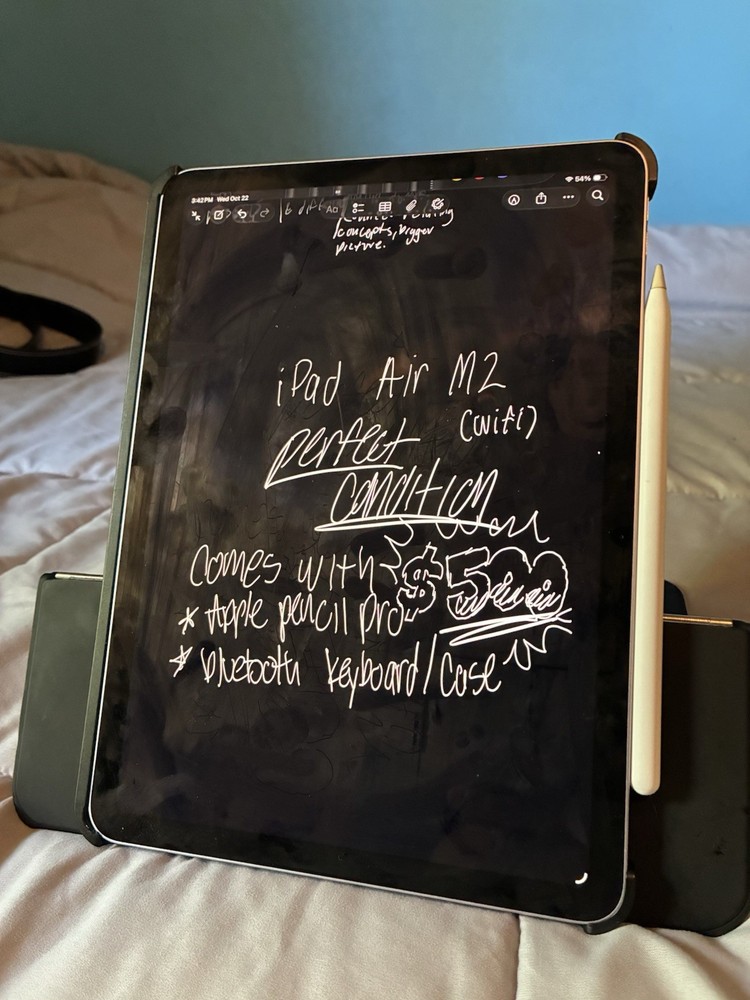 3:42 PM Wed Oct 22
54%
Aa
concepts, bigger
picture.
iPad Air M2
(wifi)
perfect
condition
$500
comes with
* Apple pencil pro
* bluetooth keyboard/case